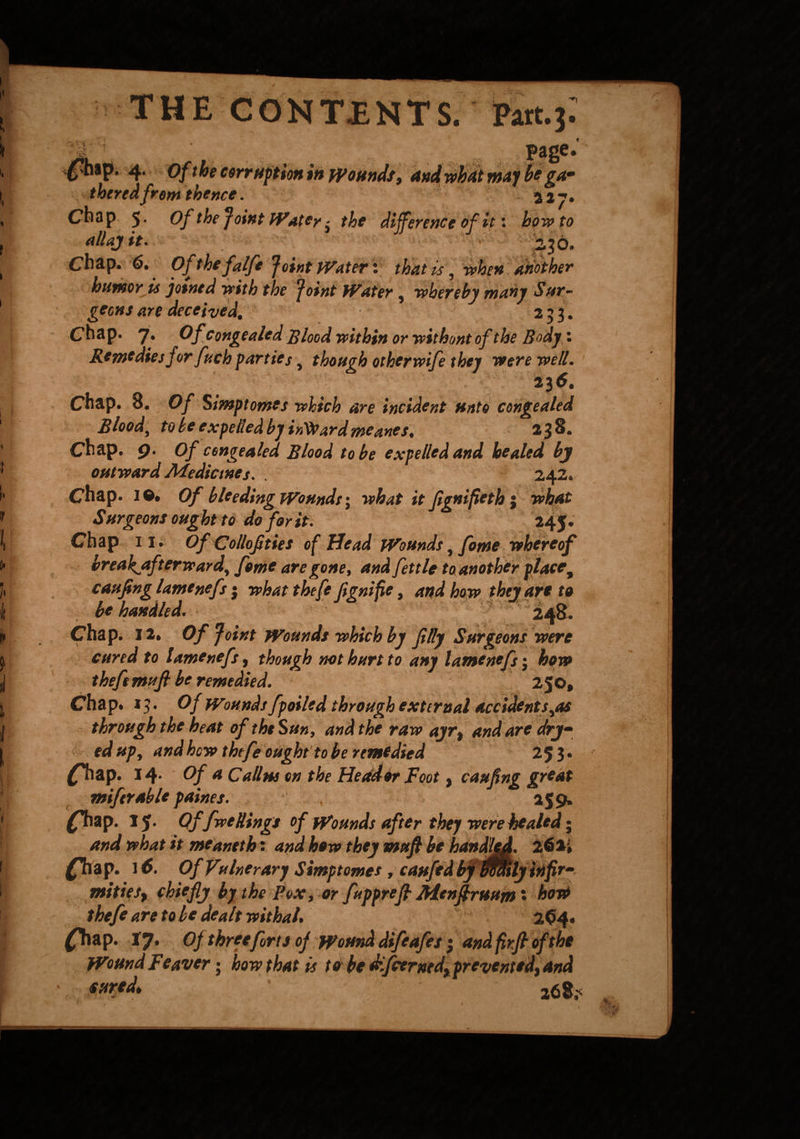 THE CONTENTS. Part.3.
page.
Chap. 4. Of the corruption in Wounds, and what may be ga-
thered from thence. 227.
Chap 5. Of the Joint Water; the difference of it: how to
allay it. 230.
Chap. 6. Of the false Joint Water: that is, when another
humor is joined with the Joint Water, whereby many Sur-
geons are deceived. 233.
Chap. 7. Of congealed Blood within or without of the Body:
Remedies for such parties, though otherwise they were well.
236.
Chap. 8. Of Simptomes which are incident unto congealed
Blood, to be expelled by inWard meanes. 238.
Chap. 9. Of congealed Blood to be expelled and healed by
outward Medicines. 242.
Chap. 10. Of bleeding Wounds; what it signifieth; what
Surgeons ought to do for it. 245.
Chap 11. Of Collosities of Head Wounds, some whereof
break afterward, some are gone, and settle to another place,
causing lameness; what these signifie, and how they are to
be handled. 248.
Chap. 12. Of Joint Wounds which by silly Surgeons were
cured to lameness, though not hurt to any lameness; how
these must be remedied. 250,
Chap. 13. Of Wounds spoiled through external accidents, as
through the heat of the Sun, and the raw ayr, and are dry-
ed up, and how these ought to be remedied 253.
Chap. 14. Of a Callus on the Head or Foot, causing great
miserable paines. 259.
Chap. 15. Of swellings of Wounds after they were healed;
and what it meaneth: and how they must be handled. 262;
Chap. 16. Of Vulnerary Simptomes, caused by bodily infir-
mities, chiefly by the Pox, or supprest Menstruum: how
these are to be dealt withal. 264.
Chap. 17. Of three sorts of Wound diseases; and first of the
Wound Feaver; how that is to be discerned, prevented, and
cured. 268;